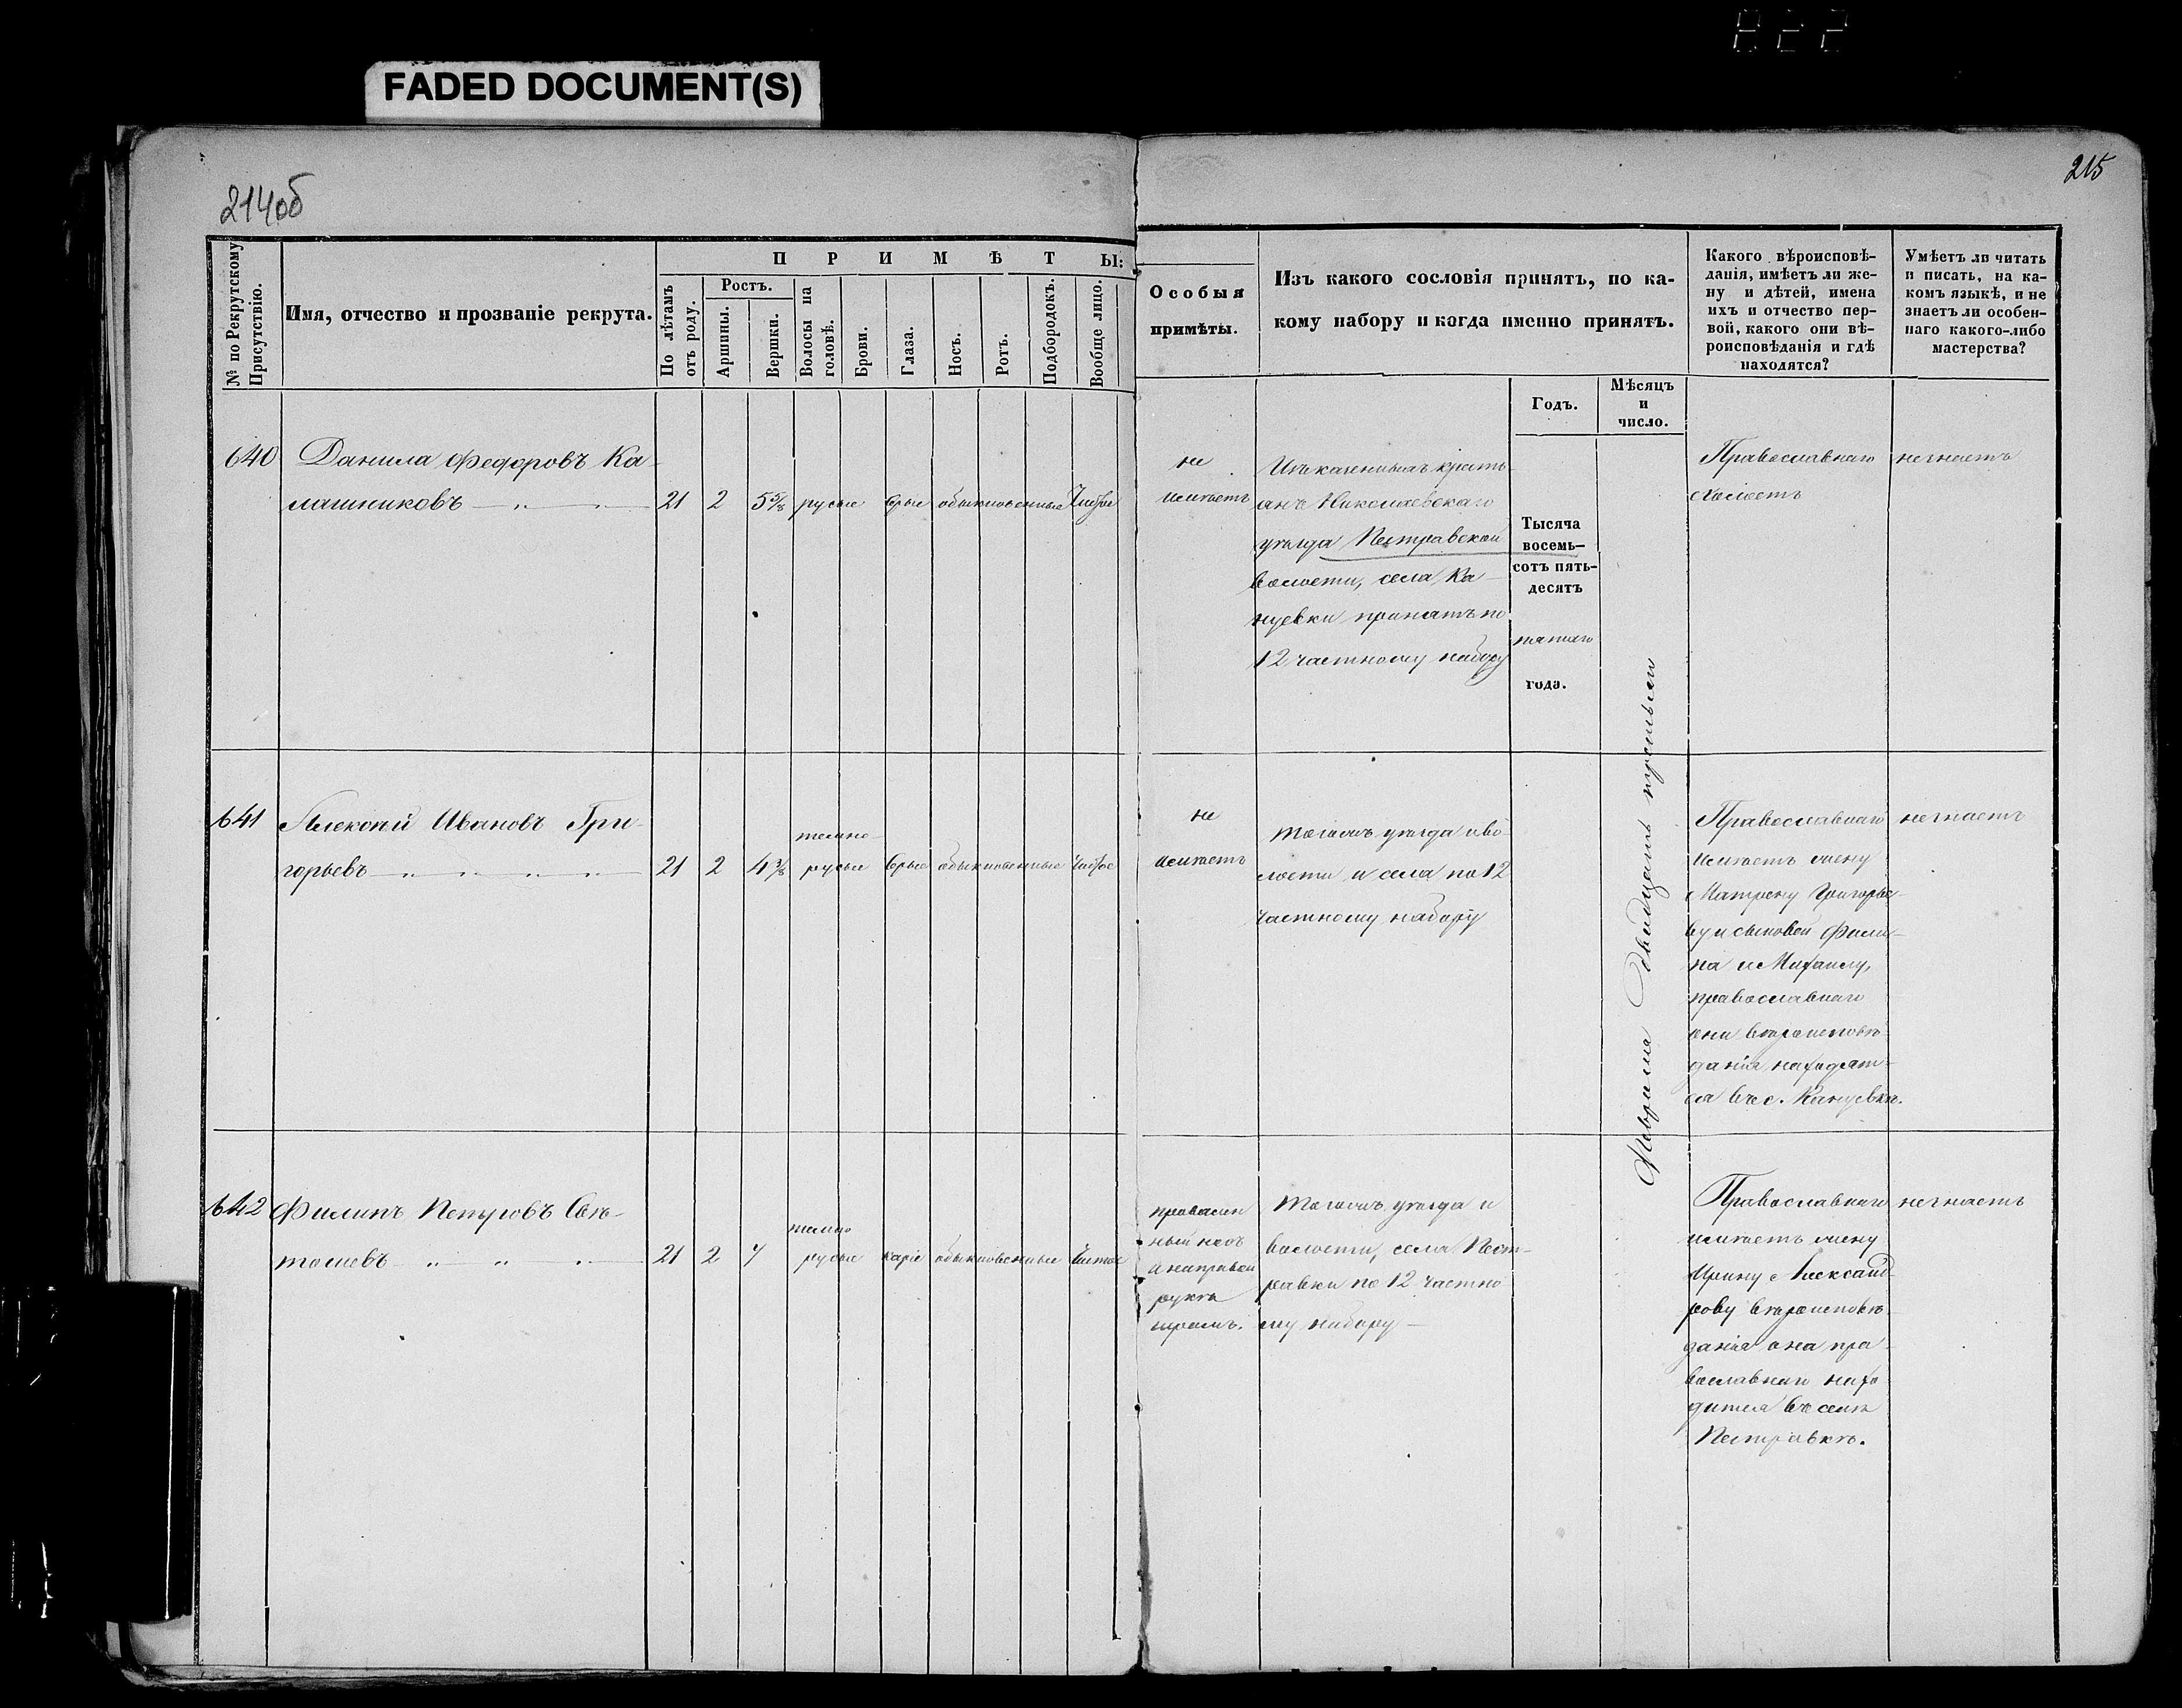 FADED DOCUMENT(S)
822
214об
215
№ по Рекрутскому
Присутствію.
Имя, отчество и прозваніе рекрута.
П Р И М Ѣ Т Ы:
По лѣтамъ
отъ роду.
Ростъ.
Аршины.
Вершки.
Волосы на
головѣ.
Брови.
Глаза.
Носъ.
Ротъ.
Подбородокъ.
Вообще лицо.
Особыя
примѣты.
Изъ какого сословія принятъ, по ка-
кому набору и когда именно принятъ.
Какого вѣроисповѣ-
данія, имѣетъ ли же-
ну и дѣтей, имена
ихъ и отчество пер-
вой, какого они вѣ-
роисповѣданія и гдѣ
находятся?
Умѣетъ ли читать
и писать, на ка-
комъ языкѣ, и не
знаетъ ли особен-
наго какого-либо
мастерства?
Годъ.
Мѣсяцъ
и
число.
640 Данила Федоровъ Ка-
лашниковъ 21 2 5 5/8 русые серые обыкновенные чистое
не
имѣетъ
Изъ казенныхъ кресть-
анъ Николаевскаго
уѣзда Пестравской
волости, села Ка-
нуевки принятъ по
12 частному набору
Тысяча
восемь-
сотъ пять-
десятъ
пятаго
года.
Православнаго
холостъ
незнаетъ
Февраля двадцать третьяго
641 Алексѣй Ивановъ Гри-
горьевъ 21 2 4 3/8 темно-
русые серые обыкновенные чистое
не
имѣетъ
Тогожъ уѣзда и во-
лости и села по 12
частному набору
Православнаго
имѣетъ жену
Матрену Григорье-
ву и сыновей Фили-
па и Михаилу,
православнаго
они вѣроисповѣ-
данія, находят-
ся въ с. Кануевкѣ.
незнаетъ
642 Филипъ Петровъ Свѣ-
21 2 7 темно
русые каріе обыкновенные чистое
на правой
рукѣ
шрамъ.
Тогожъ уѣзда и
волости, села Пест-
равки по 12 частно
му набору
Православнаго
имѣетъ жену
Ирину Александ-
рову вѣроисповѣ-
данія она пра-
вославнаго нахо-
дится въ селѣ
Пестравкѣ.
незнаетъ